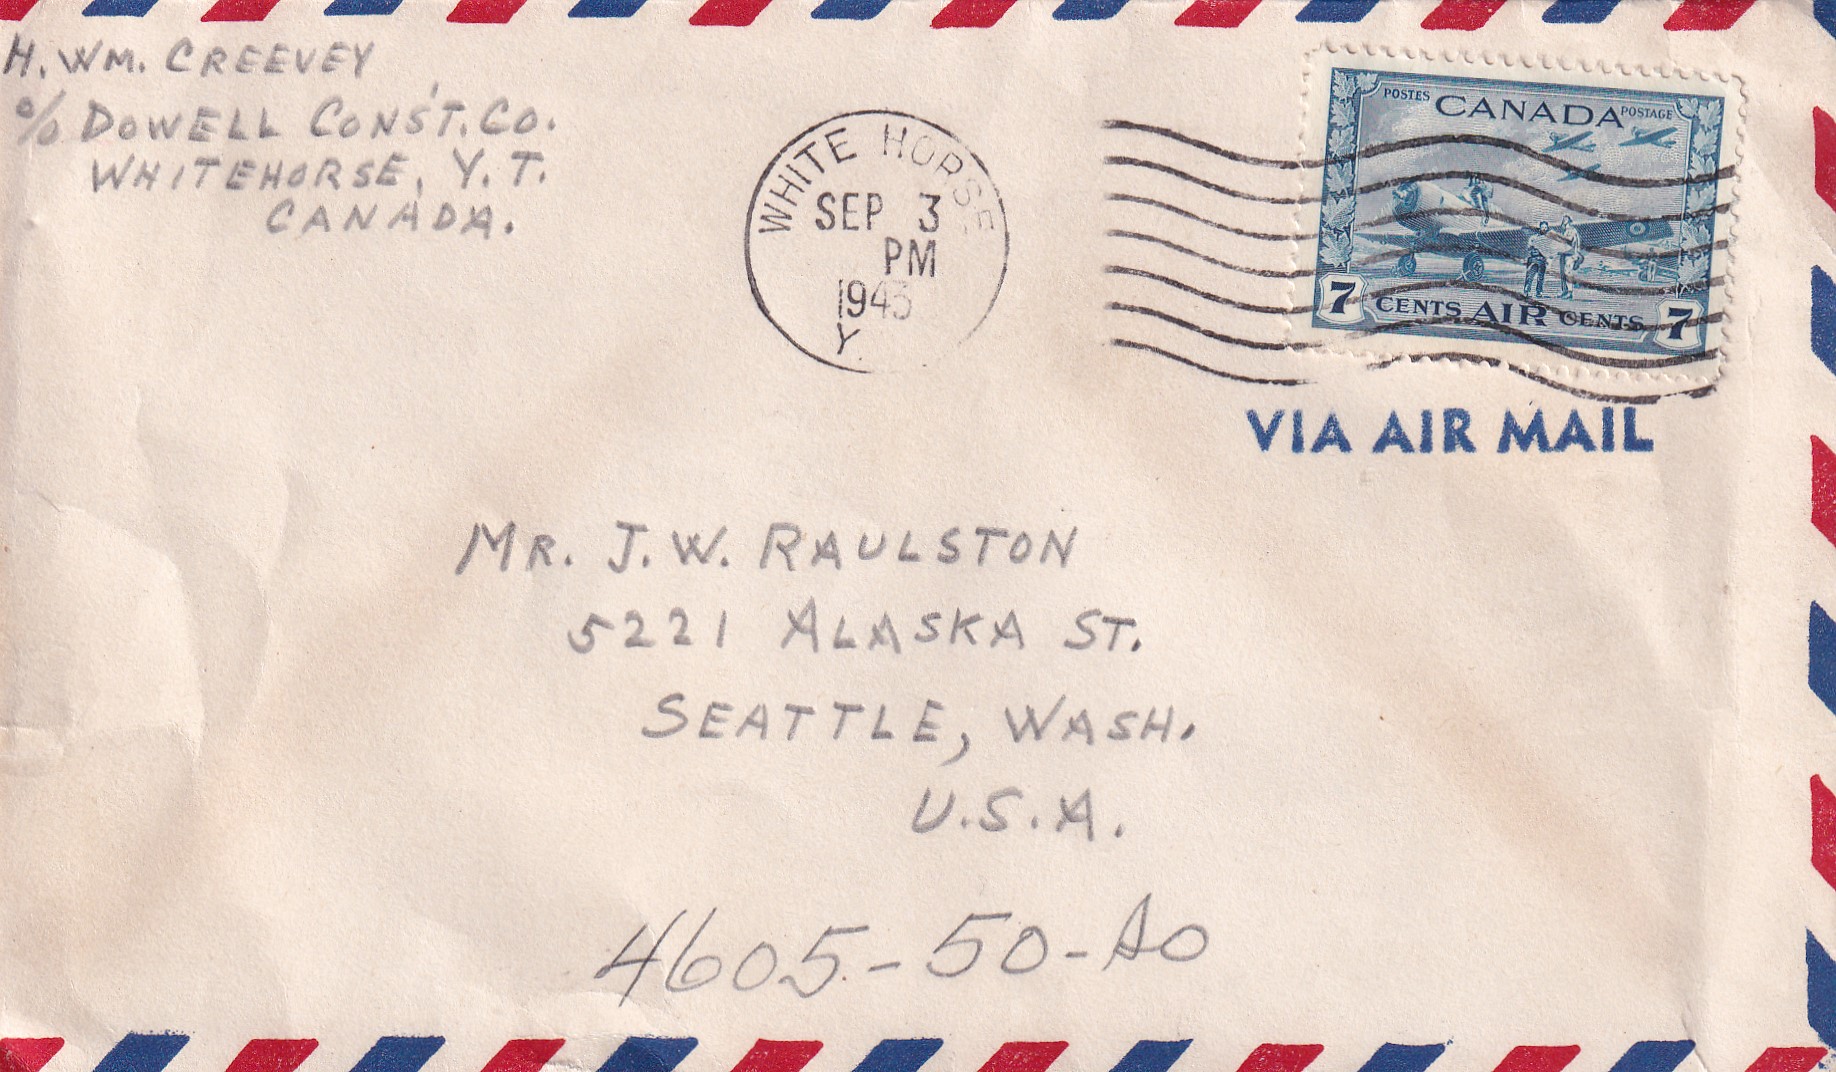 H. WM. CREEVEY
c/o DOWELL CONS'T. CO.
WHITEHORSE, Y.T.
CANADA.
WHITE HORSE
SEP 3
PM
1943
Y.
POSTES CANADA POSTAGE
7 CENTS AIR CENTS 7
VIA AIR MAIL
MR. J.W. RAULSTON
5221 ALASKA ST.
SEATTLE, WASH.
U.S.A.
4605-50-